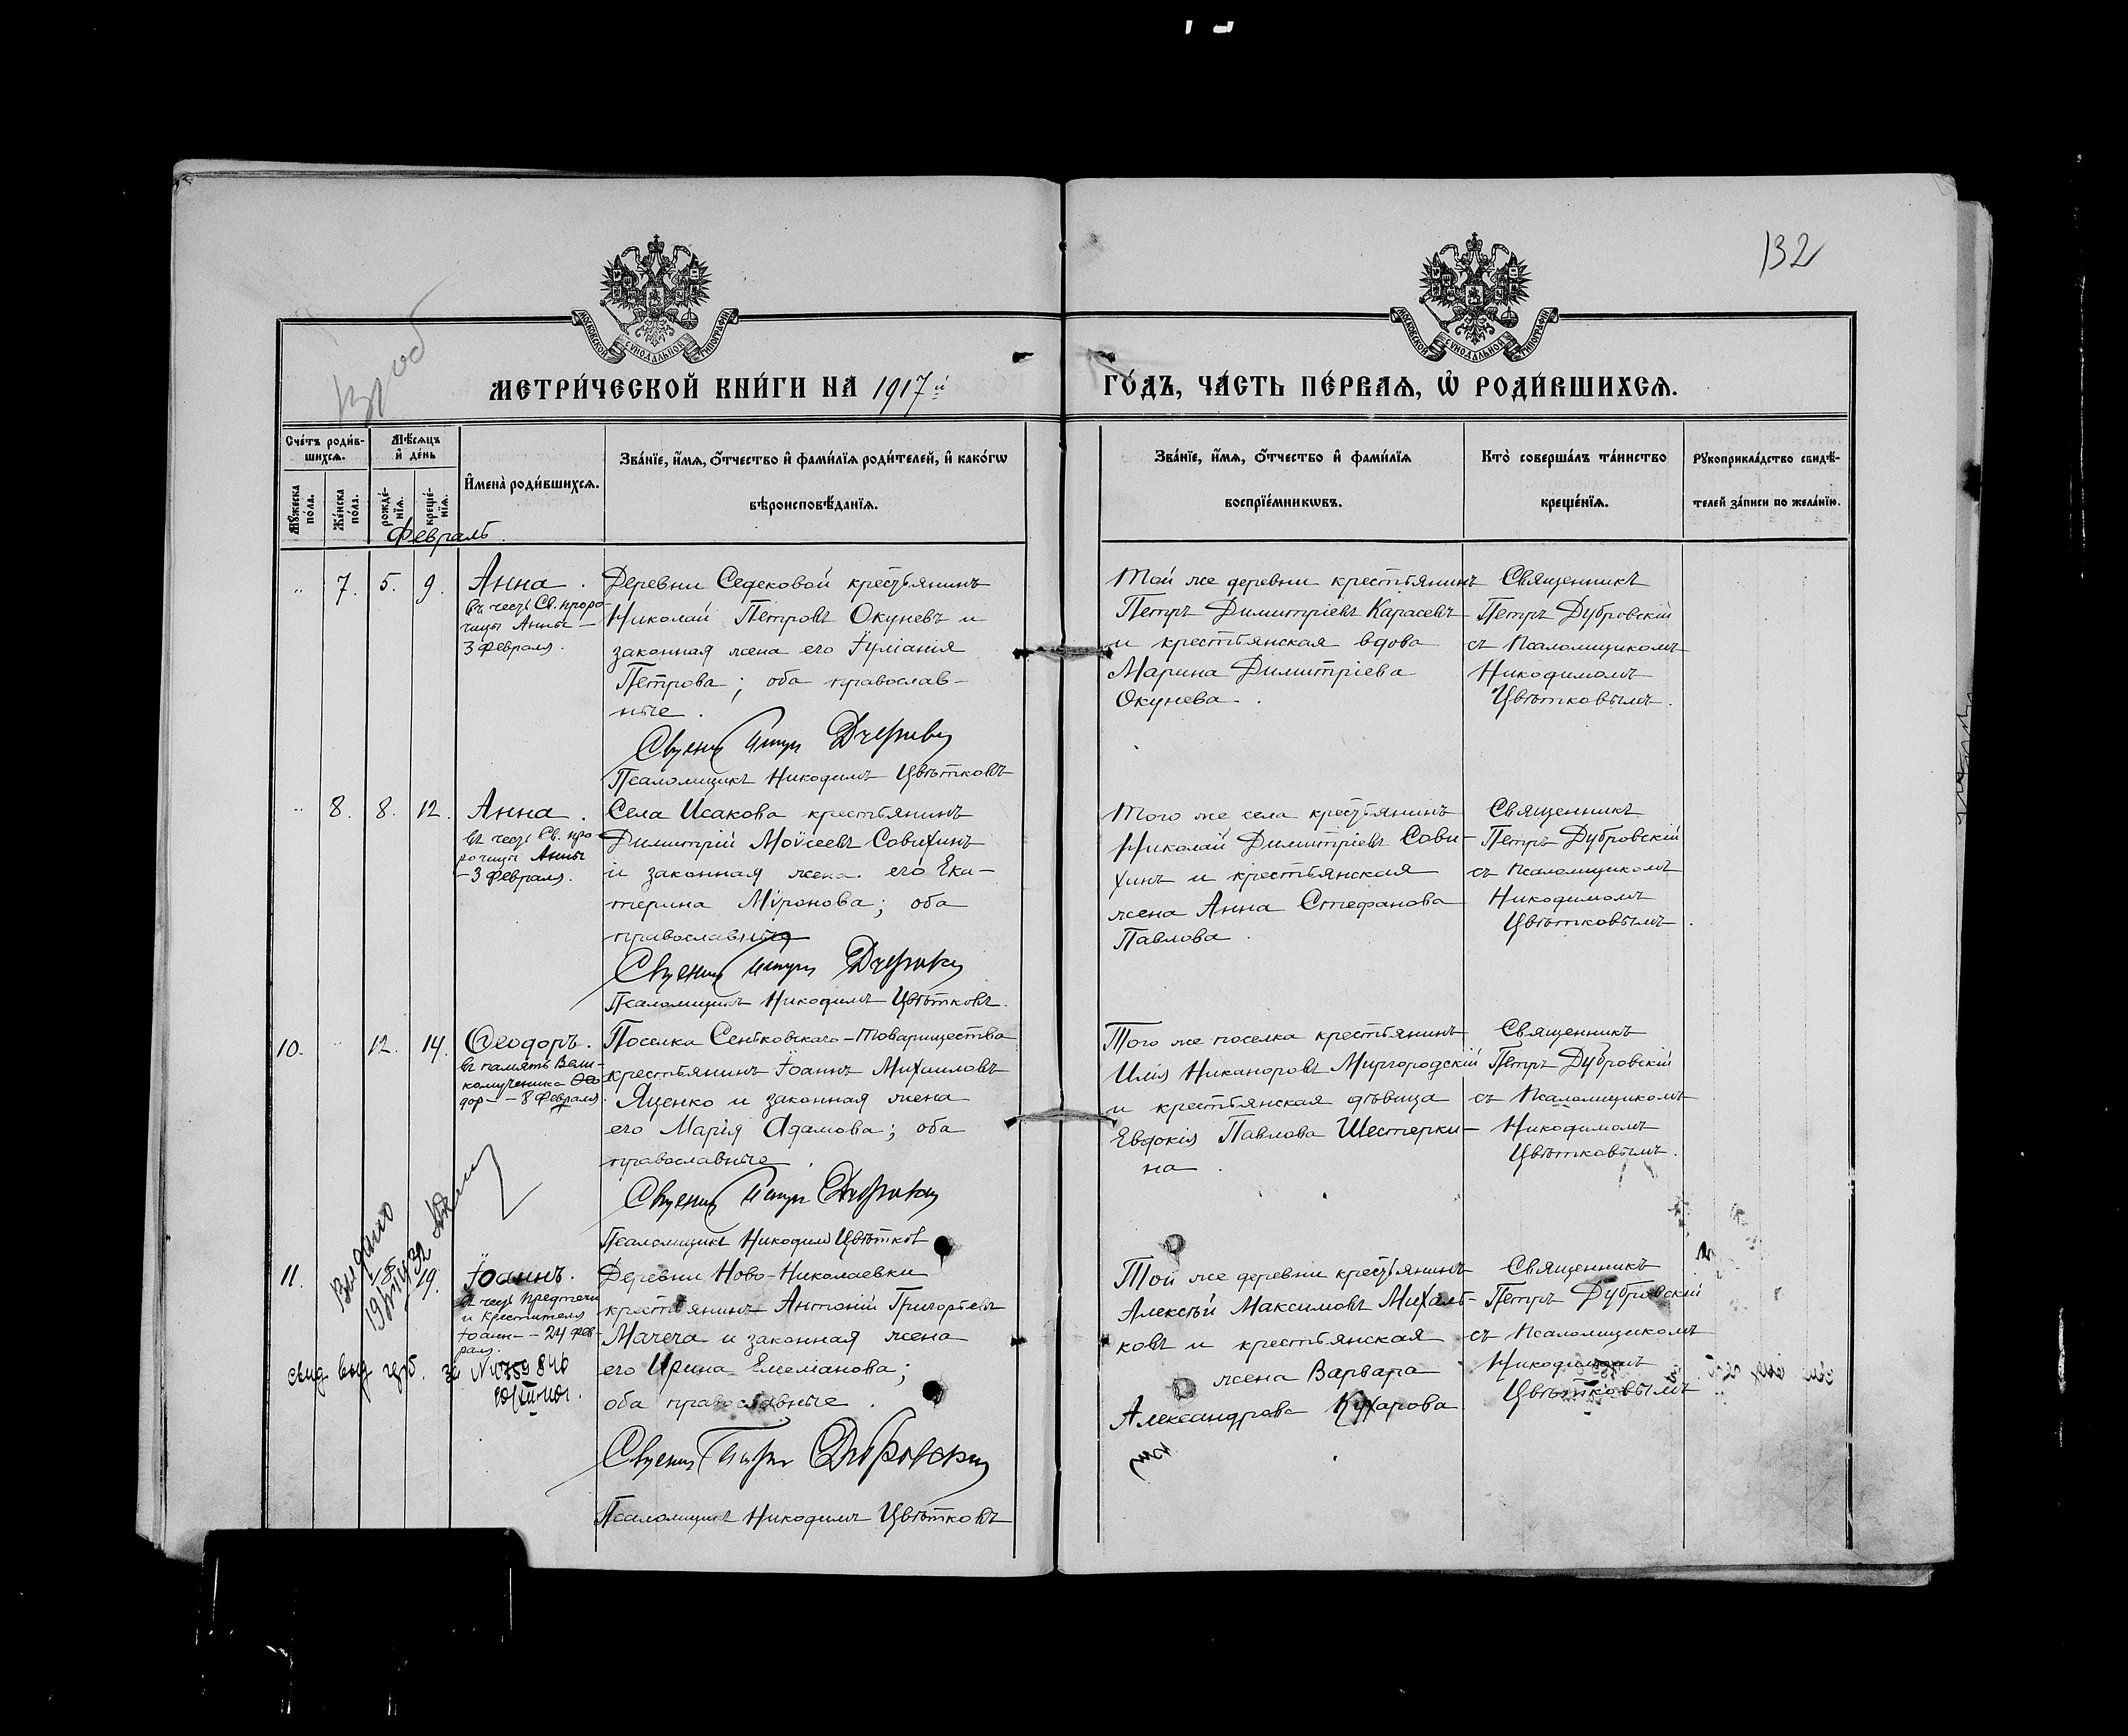 132
МОСКОВСКОЙ СѴНОДАЛЬНОЙ ТИПОГРАФІИ
МОСКОВСКОЙ СѴНОДАЛЬНОЙ ТИПОГРАФІИ
МЕТРИ́ЧЕСКОЙ КНИ́ГИ НА 1917й
ГО́ДЪ, ЧА́СТЬ ПЕ́РВАѦ, Ѡ҆ РОДИ́ВШИХСѦ.
Сче́тъ роди́в-
шихсѧ.
Мѣ́сѧцъ
и҆ де́нь
Мꙋ́жеска по́ла.
Же́нска по́ла.
рожде́-
нїѧ.
креще́-
нїѧ.
И҆мена̀ роди́вшихсѧ.
Зва́нїе, и҆́мѧ, ѻ҆́тчество и҆ фами́лїѧ роди́телей, и҆ како́гѡ
вѣроисповѣ́данїѧ.
Зва́нїе, и҆́мѧ, ѻ҆́тчество и҆ фами́лїѧ
воспрїе́мникѡвъ.
Кто̀ соверша́лъ та́инство
креще́нїѧ.
Рꙋкоприкла́дство свидѣ́-
телей за́писи по жела́нїю.
Февраль
„ 7. 5. 9.
Анна.
въ честь Св. проро-
чицы Анны —
3 февраля.
Деревни Седековой крестьянинъ
Николай Петровъ Окуневъ и
законная жена его Іуліанія
Петрова; оба православ-
ные.
Псаломщикъ Никодимъ Цвѣтковъ
Той же деревни крестьянинъ
Петръ Димитріевъ Карасевъ
и крестьянская вдова
Марина Димитріева
Окунева.
Священникъ
Петръ Дубровскій
съ псаломщикомъ
Никодимомъ
Цвѣтковымъ.
„ 8. 8. 12.
Анна.
въ честь Св. про-
рочицы Анны
— 3 февраля.
Села Исакова крестьянинъ
Димитрій Моѵсеевъ Савихинъ
и законная жена его Ека-
терина Мѵронова; оба
православные
Псаломщикъ Никодимъ Цвѣтковъ.
Того же села крестьянинъ
Николай Димитріевъ Сави-
хинъ и крестьянская
жена Анна Стефанова
Павлова.
Священникъ
Петръ Дубровскій
съ псаломщикомъ
Никодимомъ
Цвѣтковымъ.
10. „ 12. 14.
Ѳеодоръ.
въ память Вели-
комученика Ѳео-
дор— — 8 февраля.
Поселка Сентковскаго-Товарищества
крестьянинъ Іоаннъ Михаиловъ
Яценко и законная жена
его Марія Адамова; оба
православные.
Псаломщикъ Никодим Цвѣтков
Того же поселка крестьянинъ
Илія Никаноровъ Миргородскій
и крестьянская дѣвица
Евдокія Павлова Шестерки-
на.
Священникъ
Петръ Дубровскій
съ псаломщикомъ
Никодимомъ
Цвѣтковымъ.
Выдано
11. 18. 19.
Іоаннъ.
въ честь Предтечи
и Крестителя
Іоанн— — 24 фев-
раля.
Деревни Ново-Николаевки
крестьянинъ Антоній Григорьевъ
Мачеча и законная жена
его Ирина Емеліанова;
оба православные.
Псаломщикъ Никодимъ Цвѣтковъ
Той же деревни крестьянинъ
Алексѣй Максимовъ Михаль-
ковъ и крестьянская
жена Варвара
Александрова Кухарова
Священникъ
Петръ Дубровскій
съ псаломщикомъ
Никодимомъ
Цвѣтковымъ